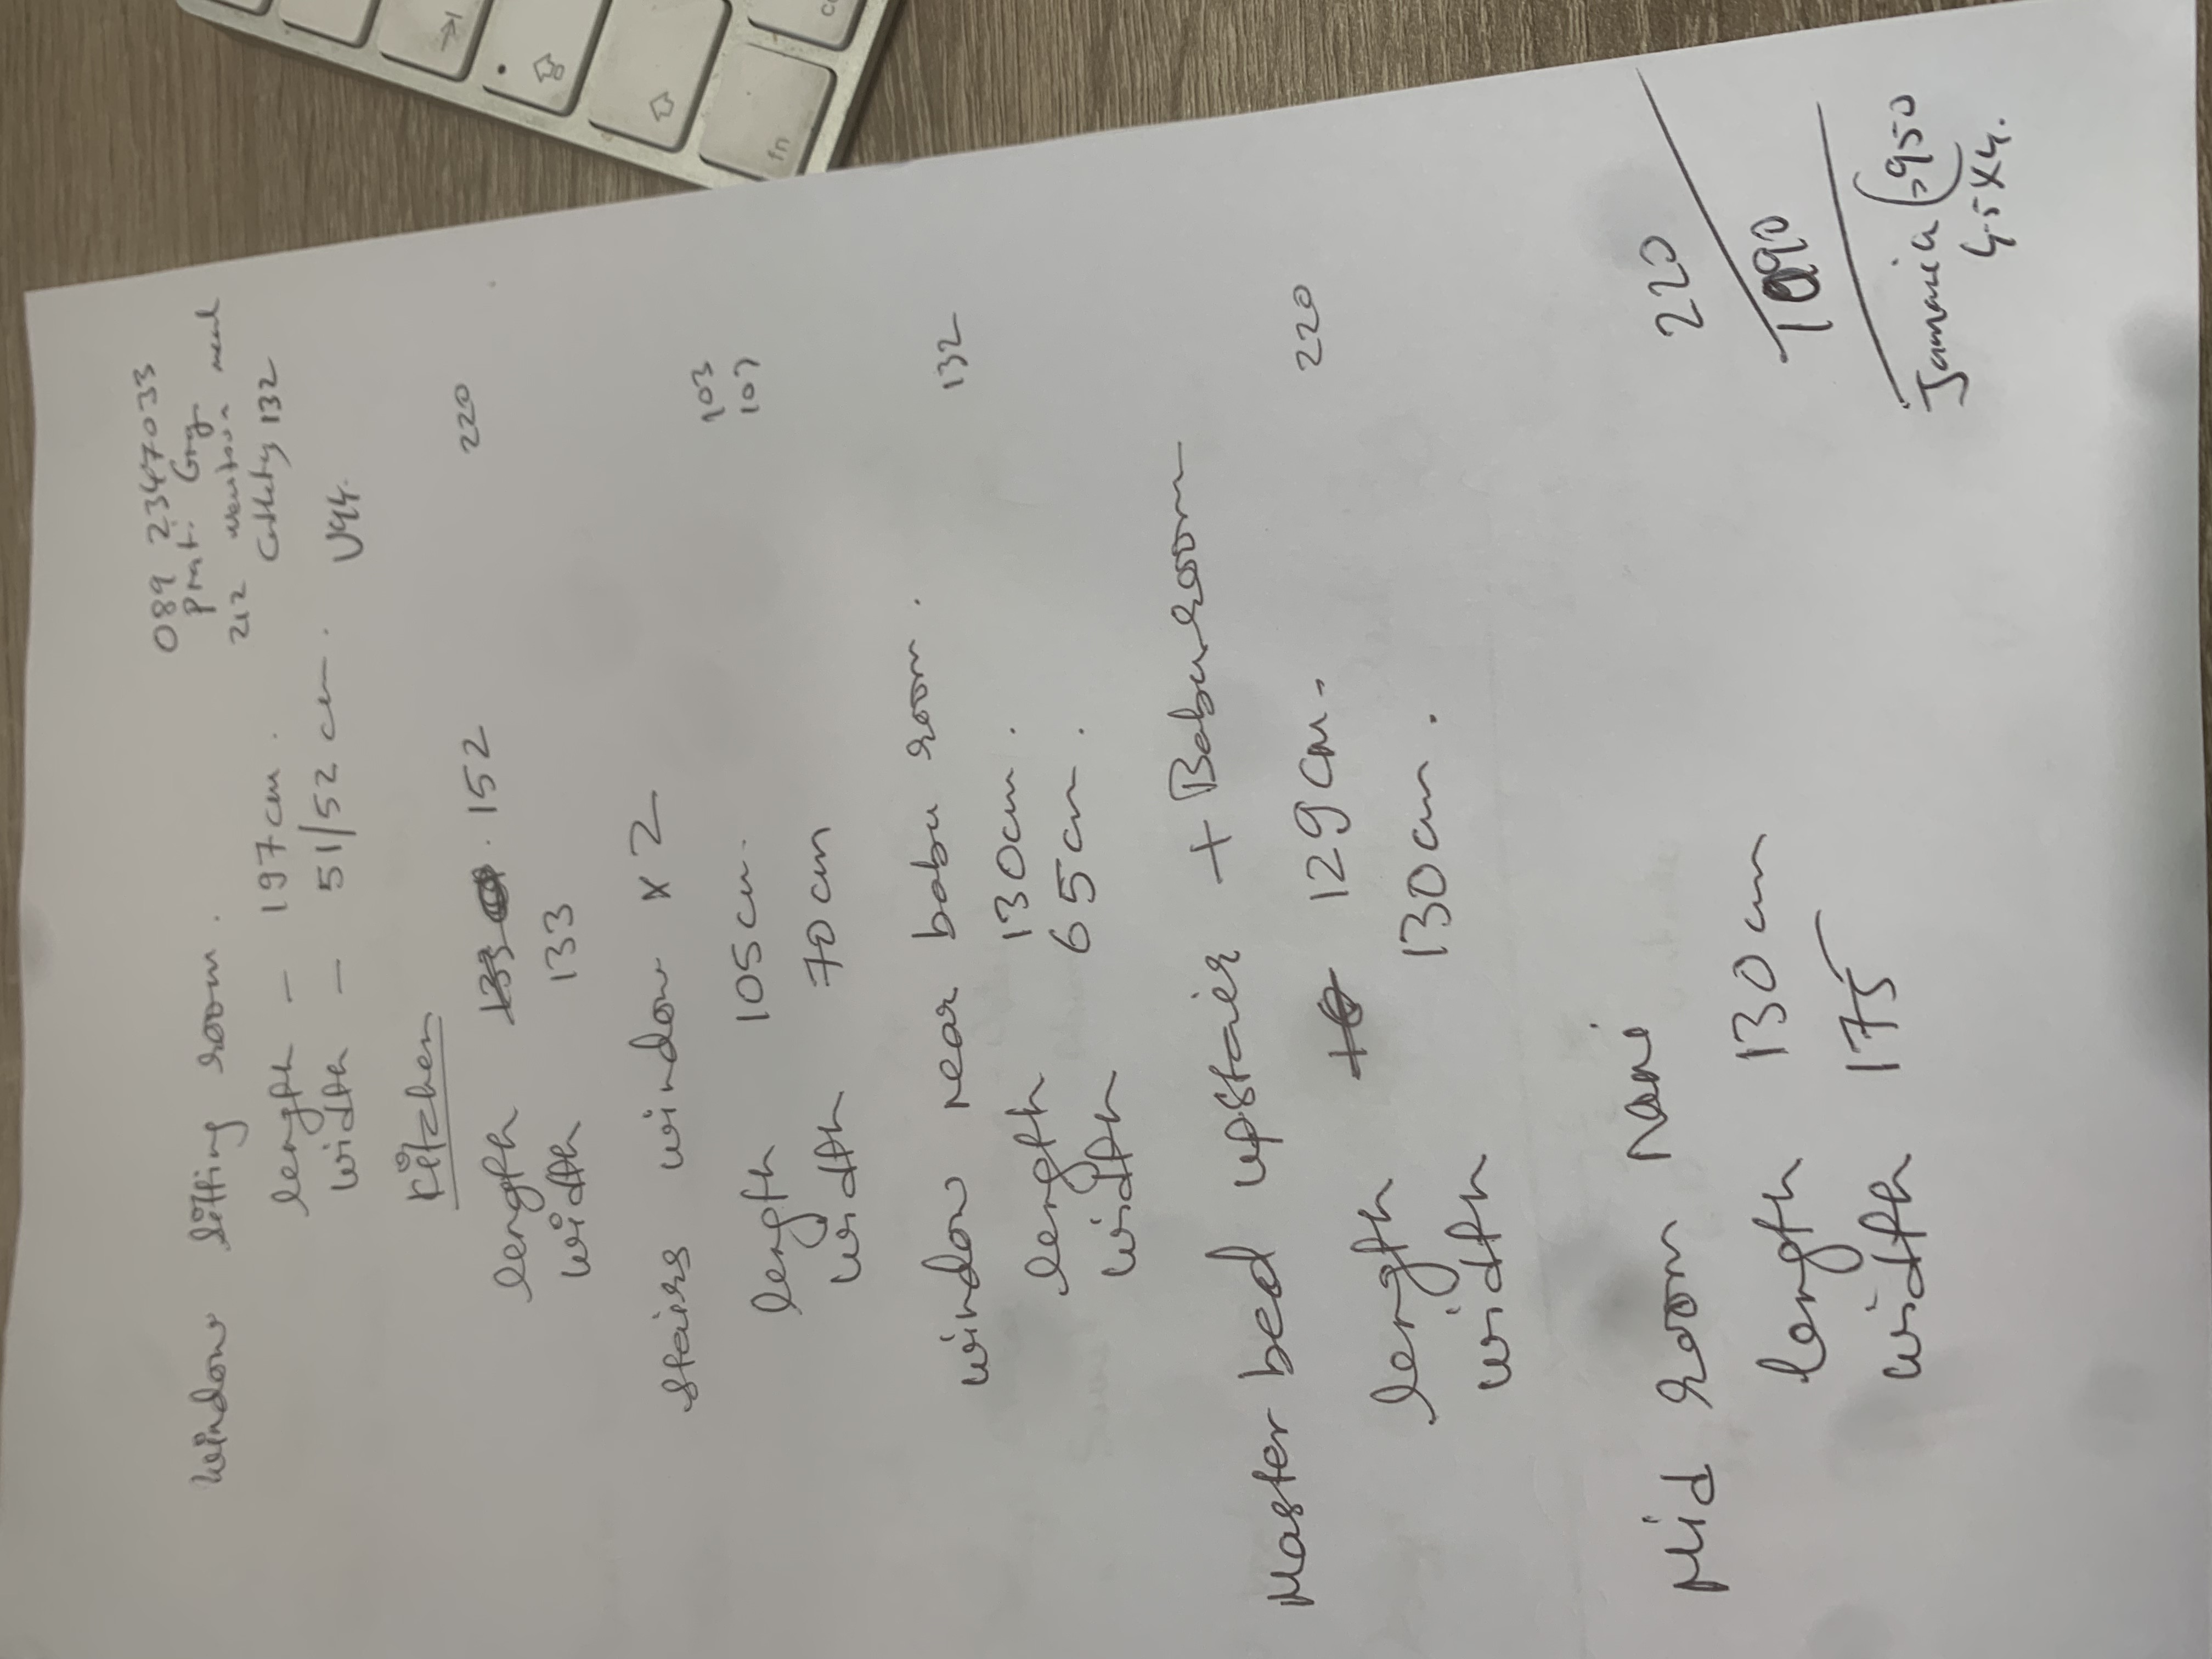 089 2347033
212
132
Window sitting room.
length - 197cm.
width - 51/52 cm.
V94.
Kitchen
length 152 220
width 133
stairs window x 2
103
length 105cm. 107
width 70cm
window near babu room. 132
length 130cm.
width 65cm.
Master bed upstair + Babu room
length 129cm. 220
width 130cm.
Mid room Nani
length 130cm 220
width 175
950
4.5x4.
fn